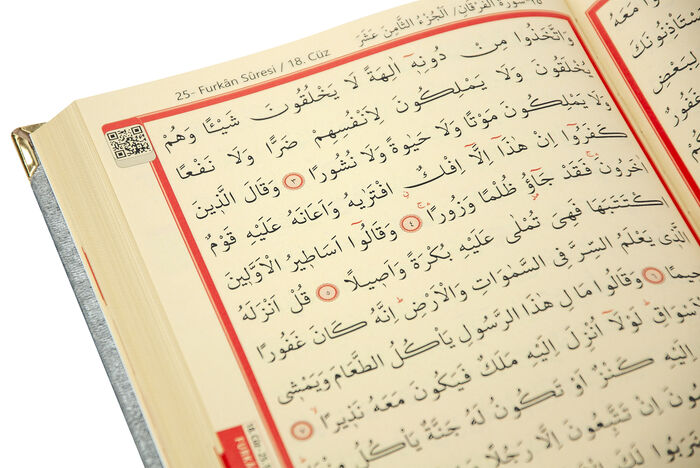 25- Furkân Sûresi / 18. Cüz
سورة الفرقان / الجزء الثامن عشر
وَاتَّخَذُوا مِنْ دُونِهٖٓ اٰلِهَةً لَا يَخْلُقُونَ شَيْـًٔا وَهُمْ
يُخْلَقُونَ وَلَا يَمْلِكُونَ لِاَنْفُسِهِمْ ضَرًّا وَلَا نَفْعًا
وَلَا يَمْلِكُونَ مَوْتًا وَلَا حَيٰوةً وَلَا نُشُورًا ﴿٣﴾ وَقَالَ الَّذٖينَ
كَفَرُٓوا اِنْ هٰذَٓا اِلَّٓا اِفْكٌ افْتَرٰيهُ وَاَعَانَهُ عَلَيْهِ قَوْمٌ
اٰخَرُونَ فَقَدْ جَٓاؤُ ظُلْمًا وَزُورًا ﴿٤﴾ وَقَالُٓوا اَسَاطٖيرُ الْاَوَّلٖينَ
اكْتَتَبَهَا فَهِيَ تُمْلٰى عَلَيْهِ بُكْرَةً وَاَصٖيلًا ﴿٥﴾ قُلْ اَنْزَلَهُ
الَّذٖي يَعْلَمُ السِّرَّ فِي السَّمٰوَاتِ وَالْاَرْضِ اِنَّهُ كَانَ غَفُورًا
﴿٦﴾ وَقَالُوا مَالِ هٰذَا الرَّسُولِ يَأْكُلُ الطَّعَامَ وَيَمْشٖي
لَوْلَٓا اُنْزِلَ اِلَيْهِ مَلَكٌ فَيَكُونَ مَعَهُ نَذٖيرًا ﴿٧﴾
اِلَيْهِ كَنْزٌ اَوْ تَكُونُ لَهُ جَنَّةٌ يَأْكُلُ
اِنْ تَتَّبِعُونَ اِلَّا رَجُلًا
مَعَهُ